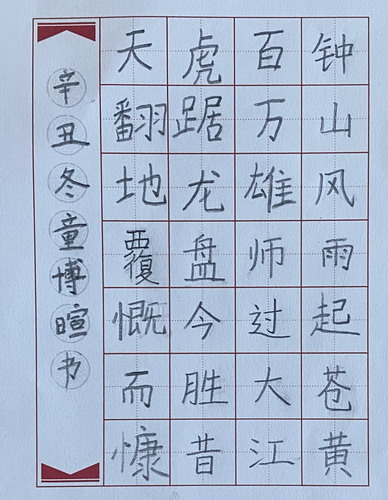 钟山风雨起苍黄
百万雄师过大江
虎踞龙盘今胜昔
天翻地覆慨而慷
辛丑冬童博暄书